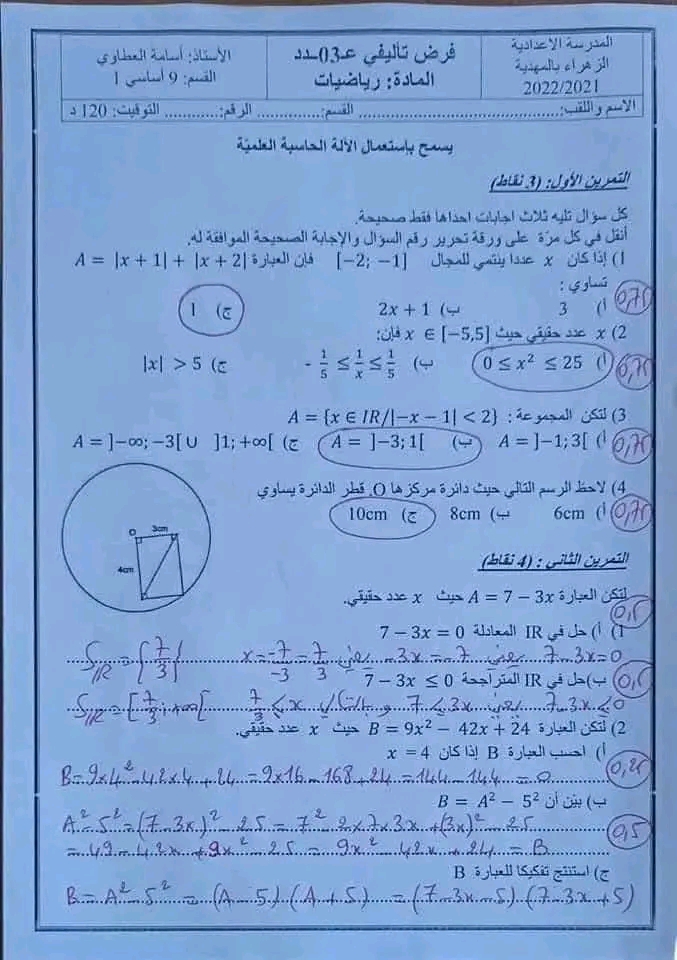 المدرسة الاعدادية
الزهراء بالمهدية
2022/2021
فرض تأليفي عـ03ـدد
المادة: رياضيات
الأستاذ: أسامة العطاوي
القسم: 9 أساسي 1
الاسم واللقب:............................ القسم:............ الرقم:............ التوقيت: 120 د
يسمح باستعمال الألة الحاسبة العلمية
التمرين الأول: (3 نقاط)
كل سؤال تليه ثلاث اجابات احداها فقط صحيحة.
أنقل في كل مرّة على ورقة تحرير رقم السؤال والإجابة الصحيحة الموافقة له.
1) إذا كان x عددا ينتمي للمجال [−2; −1] فإن العبارة A = |x + 1| + |x + 2|
تساوي :
أ) 3 ب) 2x + 1 ج) 1
0,75
2) x عدد حقيقي حيث x ∈ [−5,5] فإن:
أ) 0 ≤ x² ≤ 25 ب) - 1/5 ≤ 1/x ≤ 1/5 ج) |x| > 5
0,75
3) لتكن المجموعة : A = {x ∈ IR/|−x − 1| < 2}
أ) A = ]−1; 3[ ب) A = ]−3; 1[ ج) A = ]−∞; −3[ ∪ ]1; +∞[
0,75
4) لاحظ الرسم التالي حيث دائرة مركزها O. قطر الدائرة يساوي
أ) 6cm ب) 8cm ج) 10cm
0,75
O 3cm
4cm
التمرين الثاني : (4 نقاط)
لتكن العبارة A = 7 − 3x حيث x عدد حقيقي.
0,5
1) أ) حل في IR المعادلة 7 − 3x = 0
7-3x=0 يعني -3x=-7 يعني x=-7/-3=7/3 S_IR={7/3}
ب) حل في IR المتراجحة 7 − 3x ≤ 0
0,5
7-3x≤0 يعني 7≤3x و بالتالي 7/3≤x S_IR=[7/3;+∞[
2) لتكن العبارة B = 9x² − 42x + 24 حيث x عدد حقيقي.
أ) احسب العبارة B إذا كان x = 4
0,25
B=9×4²-42×4+24=9×16-168+24=144-144=0
ب) بيّن أن B = A² − 5²
0,5
A²-5²=(7-3x)²-25=7²-2×7×3x+(3x)²-25
=49-42x+9x²-25=9x²-42x+24=B
ج) استنتج تفكيكا للعبارة B
B=A²-5²=(A-5)(A+5)=(7-3x-5)(7-3x+5)